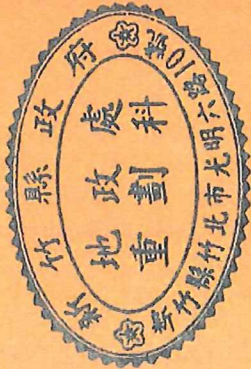 新竹縣政府
地政處
重劃科
新竹縣竹北市光明六路10號